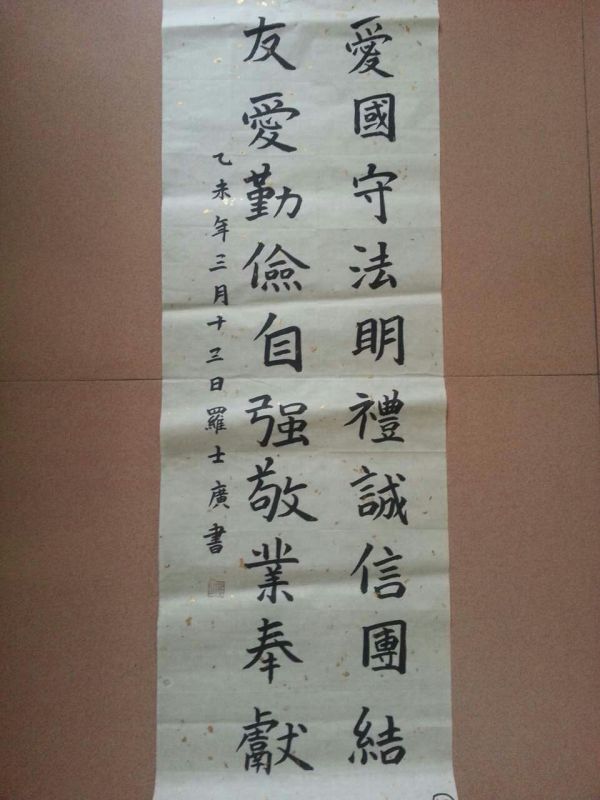 愛國守法明禮誠信團結
友愛勤儉自强敬業奉獻
乙未年三月十三日羅士廣書